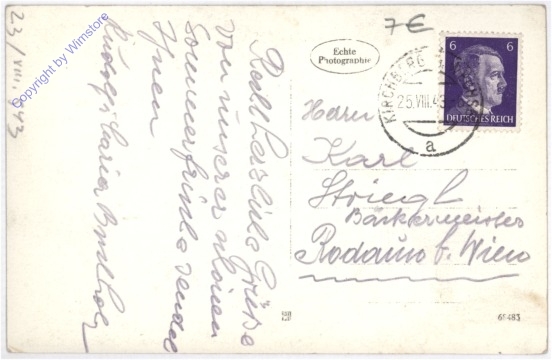 23/VIII. 43
Copyright by Wimstore
Recht herzliche Grüße
von unserer schönen
Sommerfrische sendet
Ihnen
Rudolf & Maria
7€
Echte
Photographie
6 6
DEUTSCHES REICH
KIRCHBERG
25.VIII.43
a
Herrn
Karl
Striegl
Bäckermeister
Rodaun b. Wien
69483